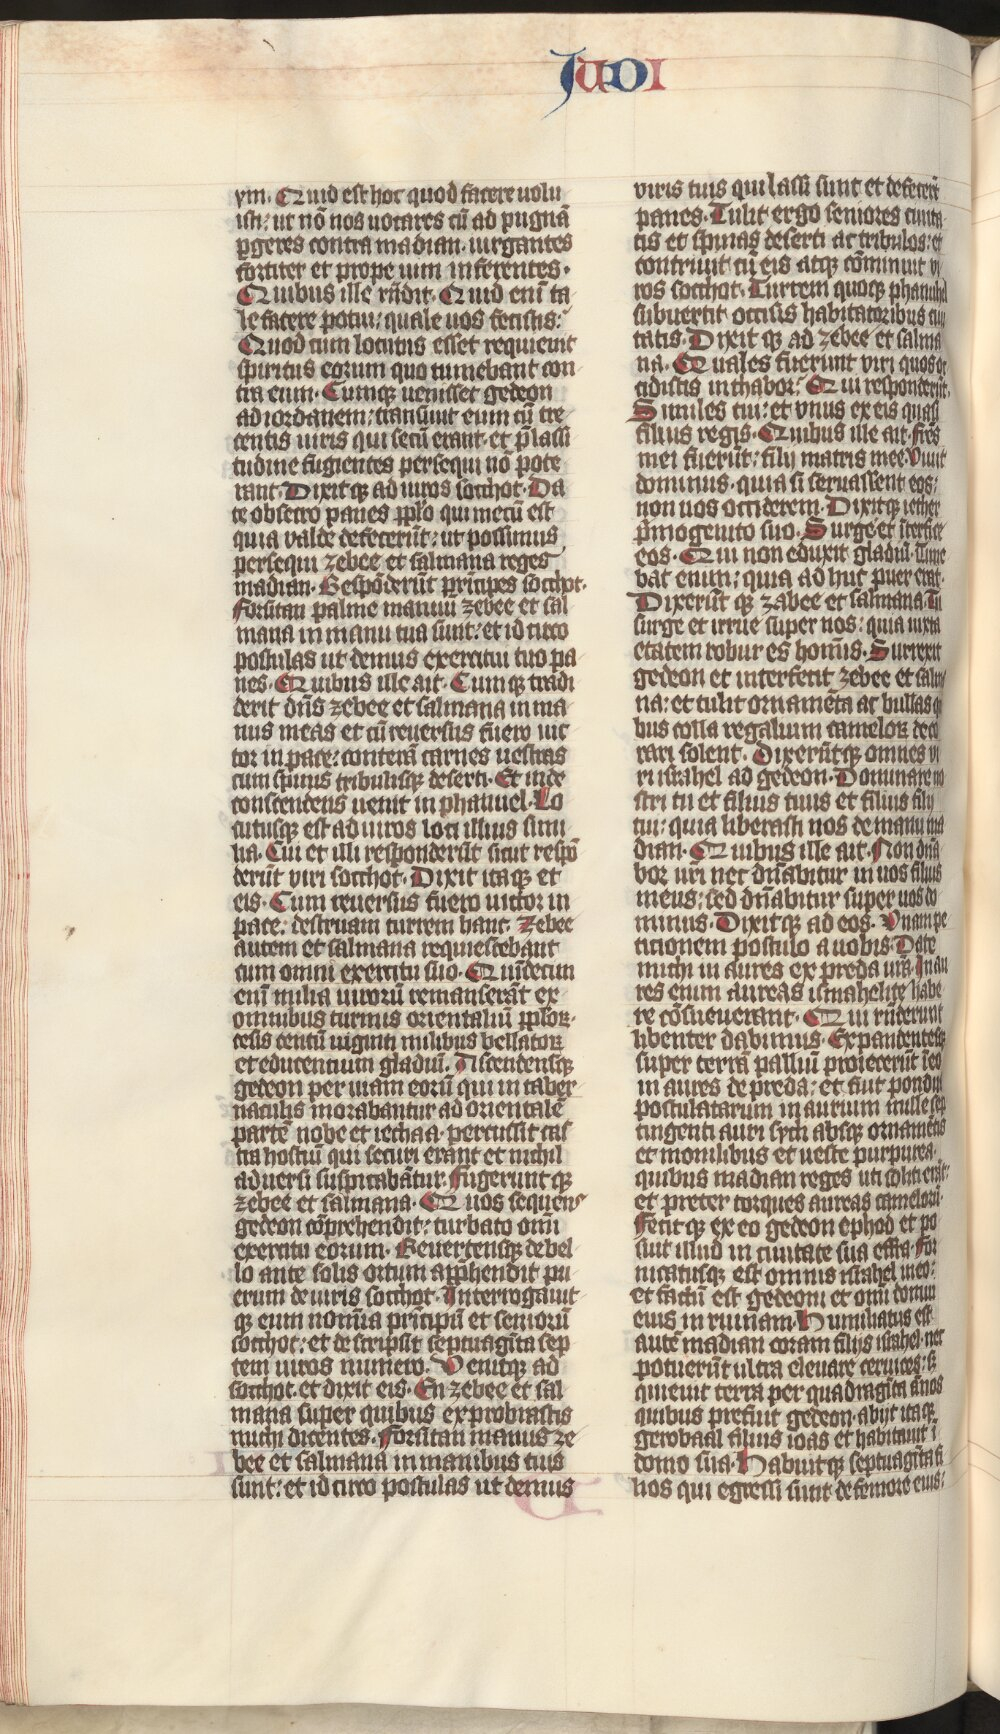 Judi
ym. Quid est hoc quod facere uolu
isti: ut nō nos uocares cū ad pugnā
ꝑgeres contra madian. iurgantes
fortiter et prope uim inferentes.
Quibus ille rn̄dit. Quid enī ta
le facere potui: quale uos fecistis:
Quod cum locutus esset requieuit
spiritus eorum quo tumebant con
tra eum. Cumqꝫ uenisset gedeon
ad iordanem: transiuit eum cū tre
centis uiris qui secū erant. et p̄ lassi
tudine fugientes persequi nō pote
rant. Dixitqꝫ ad uiros socchot. Da
te obsecro panes pp̄lo qui mecū est
quia valde defecerūt: ut possimus
persequi zebee et salmana reges
madian. Respōderūt prīcipes socchot.
Forsitan palme manuū zebee et sal
mana in manu tua sunt: et idcirco
postulas ut demus exercitui tuo pa
nes. Quibus ille ait. Cumqꝫ tradi
derit dn̄s zebee et salmana in ma
nus meas et cū reuersus fuero uic
tor in pace: conterā carnes uestras
cum spinis tribulisqꝫ deserti. Et inde
conscendens uenit in phanuel. Lo
cutusqꝫ est ad uiros loci illius simi
lia. Cui et illi responderūt sicut respō
derūt viri socchot. Dixit itaqꝫ et
eis. Cum reuersus fuero uictor in
pace: destruam turrem hanc. Zebee
autem et salmana requiescebant
cum omni exercitu suo. Quīdecim
enī milia uirorū remanserāt ex
omnibus turmis orientaliū pp̄loꝝ.
cesis centū uiginti milibus bellatoꝝ
et educentium gladiū. Ascendensqꝫ
gedeon per uiam eorū qui in taber
naculis morabantur ad orientalē
partē nobe et iecbaa. percussit cas
tra hostiū qui securi erant et nichil
aduersi suspicabātur. Fugeruntqꝫ
zebee et salmana. Quos sequens
gedeon cōprehendit: turbato omī
exercitu eorum. Reuertensqꝫ de bel
lo ante solis ortum app̄hendit pu
erum de uiris socchot. Interrogauit
qꝫ eum nomīa prīcipū et seniorū
socchot: et descripsit septuagīta sep
tem uiros numero. Venitqꝫ ad
socchot. et dixit eis. En zebee et sal
mana super quibus exprobrastis
michi dicentes. Forsitan manus ze
bee et salmana in manibus tuis
sunt: et idcirco postulas ut demus
viris tuis qui lassi sunt et defecerūt
panes. Tulit ergo seniores ciuita
tis et spinas deserti ac tribulos: et
contriuit cū eis atqꝫ cōminuit vi
ros socchot. Turrem quoqꝫ phanuhel
subuertit occisis habitatoribus ciui
tatis. Dixit qꝫ ad zebee et salma
na. Quales fuerunt viri quos oc
cidistis in thabor: Qui responderūt.
Similes tui: et vnus ex eis quasi
filius regis. Quibus ille ait. Fr̄es
mei fuerūt: filij matris mee. Viuit
dominus. quia si seruassent eos:
non uos occiderem. Dixitqꝫ iether
p̄mogenito suo. Surge et īterfice
eos. Qui non eduxit gladiū. Time
bat enim: quia adhuc puer erat.
Dixerūt qꝫ zabee et salmana. Tu
surge et irrue super nos: quia iuxta
etatem robur es homīs. Surrexit
gedeon et interfecit zebee et salma
na: et tulit ornamēta ac bullas qi
bus colla regalium cameloꝝ deco
rari solent. Dixerūtqꝫ omnes vi
ri israhel ad gedeon. Dominare no
stri tu et filius tuus et filius filij
tui: quia liberasti nos de manu ma
dian. Quibus ille ait. Non dn̄a
bor uri nec dn̄abitur in uos filius
meus: sed dn̄abitur super uos do
minus. Dixitqꝫ ad eos. Vnam pe
ticionem postulo a uobis. Date
michi in aures ex preda ur̄a. Inau
res enim aureas ismahelite habe
re cōsueuerant. Qui rn̄derunt
libenter dabimus. Expandentesqꝫ
super terrā palliū proiecerūt ī eo
in aures de preda: et fuit pondus
postulatarum in aurium mille sep
tingenti auri sycli absqꝫ ornamētis
et monilibus et ueste purpurea.
quibus madian reges uti soliti erāt:
et preter torques aureas camelorū.
Fecit qꝫ ex eo gedeon ephod et po
suit illud in ciuitate sua effra. For
nicatusqꝫ est omnis israhel in eo:
et factū est gedeoni et omī domui
eius in ruinam. Humiliatus est
autē madian coram filijs israhel. nec
potuerūt ultra eleuare ceruices: sꝫ
quieuit terra per quadragīta ānos
quibus prefuit gedeon. abijt itaqꝫ
gerobaal filius ioas et habitauit ī
domo sua. Habuitqꝫ septuagīta fi
lios qui egressi sunt de femore eius: